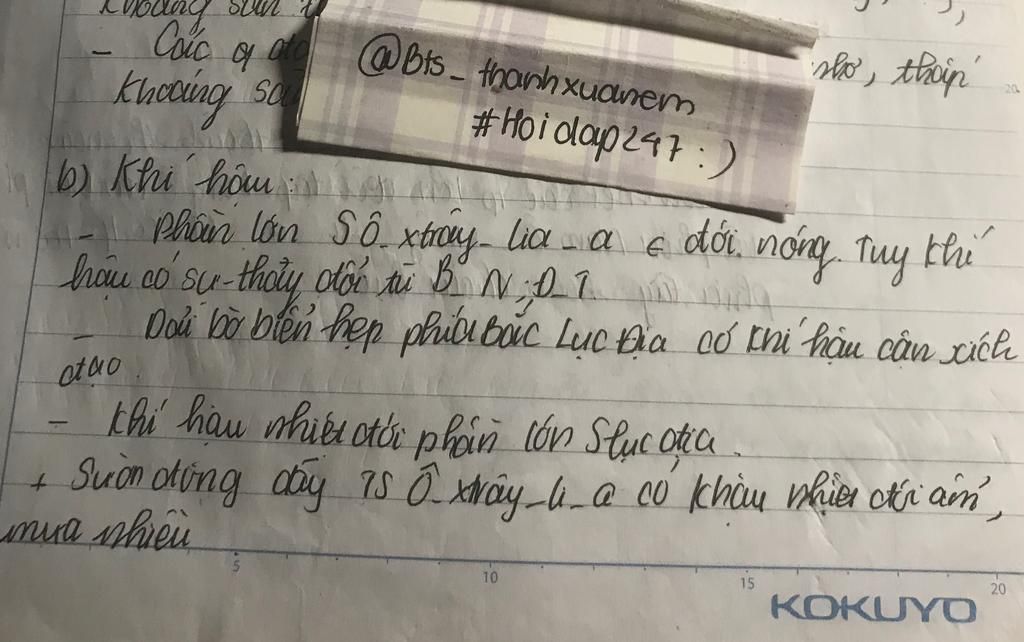 khoáng sản
- Các q
nhờ, tháp
khoáng sả
@Bts_thanhxuanem
#Hoidap247:)
b) Khí hậu:
- phần lớn S Ô_xtrây_lia_a ∈ đới nóng. Tuy khí
hậu có sự thay đổi từ B_N; Đ_T.
- Dải bờ biển hẹp phía Bắc Lục Địa có khí hậu cận xích
đạo.
- Khí hậu nhiệt đới phần lớn S lục địa.
+ Sườn đông dãy TS Ô_xtrây_li_a có khậu nhiệt đới ẩm,
mưa nhiều
5 10 15 20
KOKUYO